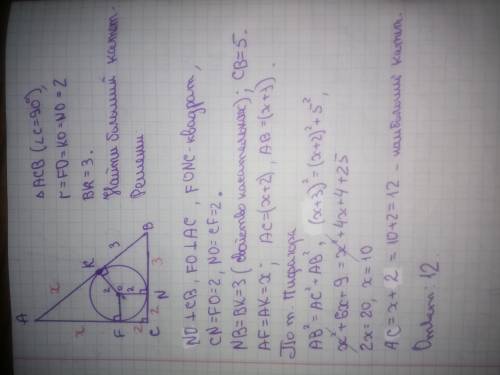 △ACB (∠C=90°),
r=FO=KO=NO=2
BK=3.
Найти больший катет.
Решение
A
x
x
K
3
2
2
2
O
F
B
2
2
3
C
N
NO⊥CB, FO⊥AC, FONC-квадрат,
CN=FO=2, NO=CF=2.
NB=BK=3 (свойство касательных); CB=5.
AF=AK=x; AC=(x+2), AB=(x+3).
По т. Пифагора
AB²=AC²+AB², (x+3)²=(x+2)²+5²,
x²+6x+9=x²+4x+4+25
2x=20, x=10
AC=x+2=10+2=12 - наибольший катет.
Ответ: 12.